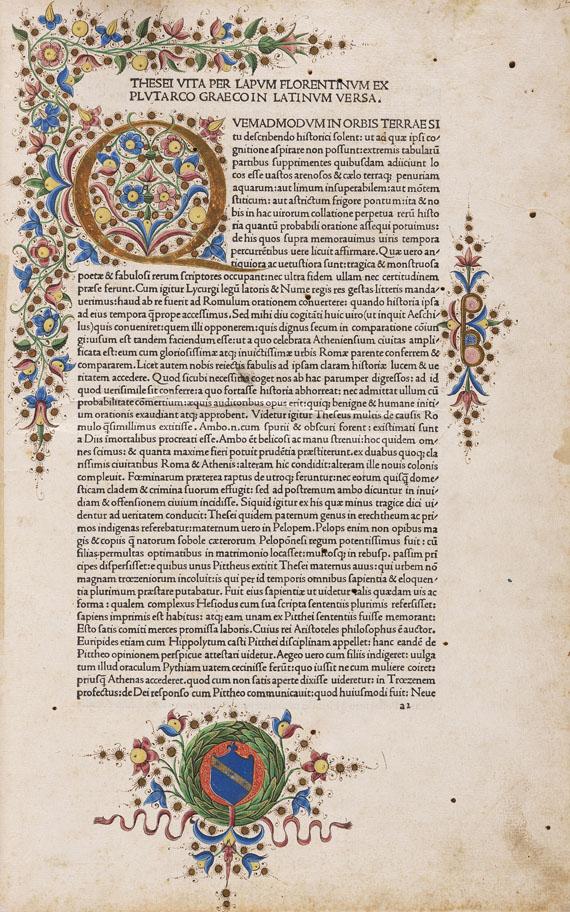 THESEI VITA PER LAPVM FLORENTINVM EX
PLVTARCO GRAECO IN LATINVM VERSA.
QVEMADMODVM IN ORBIS TERRAE SI
tu describendo historici solent: ut ad quæ ipsi co⸗
gnitione aspirare non possunt: extremis tabularū
partibus supprimentes quibusdam adiiciunt lo
cos esse uastos arenosos & cælo terraq; penuriam
aquarum: aut limum insuperabilem: aut mōtem
sciticum: aut astrictum frigore pontum: ita & no
bis in hac uirorum collatione perpetua rerū histo
ria quantū probabili oratione assequi potuimus:
de his quos supra memorauimus uiris tempora
percurrētibus uere licuit affirmare. Quæ uero an⸗
tiquiora ac uetustiora sunt: tragica & monstruosa
poetæ & fabulosi rerum scriptores occupant: nec ultra fidem ullam nec certitudinem
præse ferunt. Cum igitur Lycurgi legū latoris & Numæ regis res gestas litteris manda⸗
uerimus: haud ab re fuerit ad Romulum orationem cōuertere: quando historia ipsa
ad eius tempora q̃prope accessimus. Sed mihi diu cogitāti huic uiro (ut inquit Aeschi
lus) quis conueniret: quem illi opponerem: quis dignus secum in comparatione cōiun
gi: uisum est tandem faciendum esse: ut a quo celebrata Atheniensium ciuitas ampli
ficata est: eum cum gloriosissimæ atq; inuictissimæ urbis Romæ parente conferrem &
compararem. Licet autem nobis reiectis fabulis ad ipsam claram historiæ lucem & ue
ritatem accedere. Quod sicubi necessima coget nos ab hac parumper digressos: ad id
quod uerisimile sit conferre: a quo fortasse historia abhorreat: nec admittat ullum cū
probabilitate cōmertium: æquis auditoribus opus erit: quiq; benigne & humane initi⸗
um orationis exaudiant atq; approbent. Videtur igitur Theseus multis de causis Ro
mulo q̃simillimus extitisse. Ambo.n.cum spurii & obscuri forent: existimati sunt
a Diis imortalibus procreati esse. Ambo ēt belicosi ac manu strenui: hoc quidem om⸗
nes scimus: & quanta maxime fieri potuit prudētia præstiterunt. ex duabus quoq; cla
rissimis ciuitatibus Roma & Athenis: alteram hic condidit: alteram ille nouis colonis
compleuit. Fœminarum præterea raptus de utroq; feruntur: nec eorum quisq̃ dome⸗
sticam cladem & crimina suorum effugit: sed ad postremum ambo dicuntur in inui⸗
diam & offensionem ciuium incidisse. Siquid igitur ex his quæ minus tragice dici ui⸗
dentur ad ueritatem conducit: Thesei quidem paternum genus in erechtheum ac pri⸗
mos indigenas referebatur: maternum uero in Pelopem. Pelops enim non opibus ma
gis & copiis q̃ natorum sobole cæterorum Peloponesi regum potentissimus fuit: cū
filias permultas optimatibus in matrimonio locasset: multosq; in rebusp. passim prī
cipes dispersisset: e quibus unus Pittheus extitit Thesei maternus auus: qui urbem nō
magnam trœzeniorum incoluit: is qui per id temporis omnibus sapientia & eloquen⸗
tia plurimum præstare putabatur. Fuit eius sapientiæ ut uidetur talis quædam uis ac
forma: qualem complexus Hesiodus cum sua scripta sententiis plurimis refersisset:
sapiens imprimis est habitus: atq; eam unam ex Pitthei sententiis fuisse memorant:
Esto satis comiti merces promissa laboris. Cuius rei Aristoteles philosophus ē auctor.
Euripides etiam cum Hippolytum casti Pitthei disciplinam appellet: hanc eandē de
Pittheo opinionem perspicue attestari uidetur. Aegeo uero cum filiis indigeret: uulga
tum illud oraculum Pythiam uatem cecinisse ferūt: quo iussit ne cum muliere coiret:
priusq̃ Athenas accederet. quod cum non satis aperte dixisse uideretur: in Trœzenem
profectus: de Dei responso cum Pittheo communicauit: quod huiusmodi fuit: Neue
a2
B